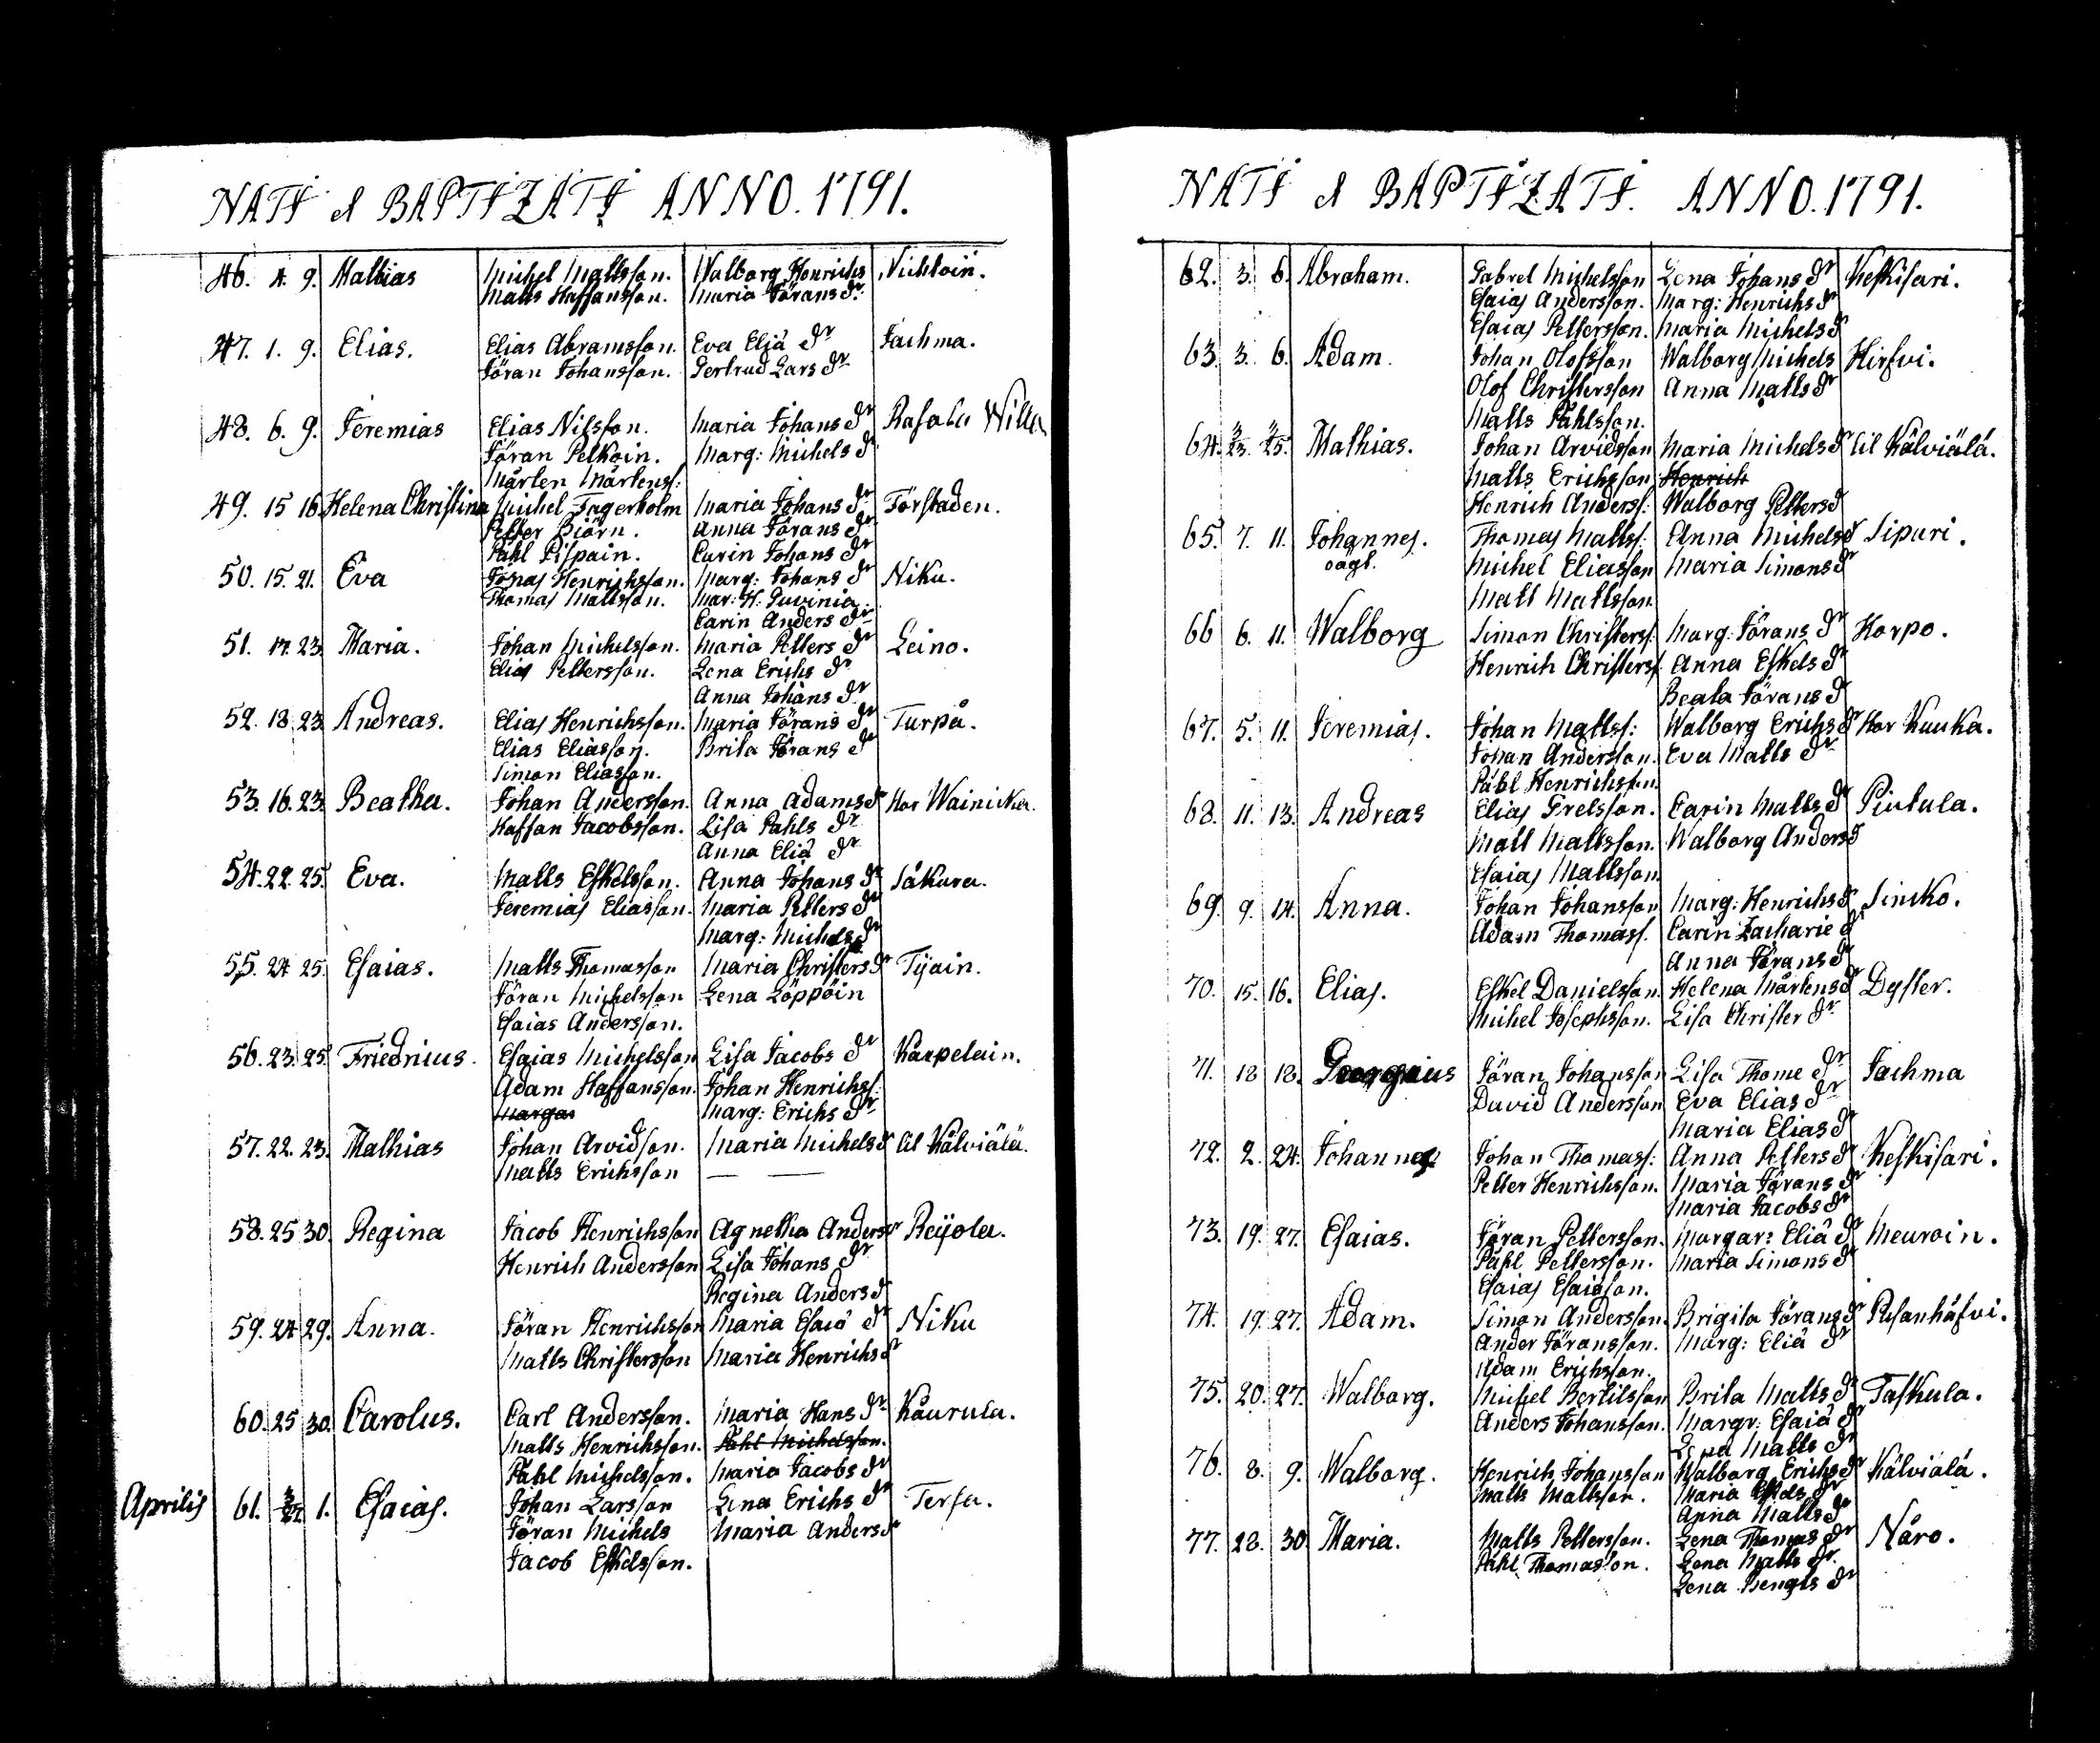 NATI et BAPTIZATI ANNO. 1791.
46. 4. 9. Mathias Michel Mattsson. Walborg Henrichs Nichtoin.
Matts Haffansson. Maria Jörans dr
47. 1. 9. Elias. Elias Abramsson. Eva Eliä dr Jachma.
Jöran Johansson. Gertrud Lars dr
48. 6. 9. Jeremias Elias Nilsson. Maria Johans dr Rasala Willa
Jöran Pelkoin. Marg: Michels dr
Mårten Mårtens:
49. 15 16. Helena Christina Michel Fagerholm Maria Johans dr Förstaden.
Petter Biörn. Anna Jörans dr
Påhl Pispain. Carin Johans dr
50. 15. 21. Eva Jonas Henrichsson. Marg: Johans dr Niku.
Thomas Mattsson. Mar: H: Suvinia
Carin Anders dr
51. 17. 23 Maria. Johan Michelsson. Maria Petters dr Leino.
Elias Pettersson. Lena Erichs dr
Anna Johans dr
52. 18. 23 Andreas. Elias Henrichsson. Maria Jörans dr Turpå.
Elias Eliasson. Brita Jörans dr
Simon Eliasson.
53. 16. 23. Beatha. Johan Andersson. Anna Adams dr Hor Wainicka.
Haffan Jacobsson. Lisa Påhls dr
Anna Eliä dr
54. 22. 25. Eva. Matts Eskelsson. Anna Johans dr Såkura.
Jeremias Eliasson. Maria Petters dr
Marg: Michels dr
55. 24 25. Esaias. Matts Thomasson Maria Christers dr Tijain.
Jöran Michelsson Lena Löppöin
Esaias Andersson.
56. 23. 25. Friedricus. Esaias Michelsson Lisa Jacobs dr Karpelain.
Adam Haffansson. Johan Henrichss:
Margar Marg: Erichs dr
57. 22. 23. Mathias Johan Arvidson. Maria Michels dr Lil Kälviälä.
Matts Erichsson — —
58. 25 30. Regina Jacob Henrichsson Agnetha Anders dr Reijola.
Henrich Andersson Lisa Johans dr
Regina Anders dr
59. 24 29. Anna. Jöran Henrichsson Maria Esaiä dr Niku
Matts Christersson Maria Henrichs dr
60. 25 30. Carolus. Carl Andersson. Maria Hans dr Kåurula.
Matts Henrichsson. Påhl Michelsson.
Påhl Michelsson. Maria Jacobs dr
Aprilis 61. 1. Esaias. Johan Larsson Lena Erichs dr Tersa.
Jöran Michels Maria Anders dr
Jacob Eskelsson.
NATI et BAPTIZATI. ANNO. 1791.
62. 3. 6. Abraham. Gabrel Michelsson Lena Johans dr Keskisari.
Esaias Andersson. Marg: Henrichs dr
Esaias Pettersson. Maria Michels dr
63. 3. 6. Adam. Johan Olofsson Walborg Michels Hirfvi.
Olof Christersson Anna Matts dr
Matts Påhlsson.
64. 3/23. 3/25. Mathias. Johan Arvidsson Maria Michels dr Lil Kälviälä.
Matts Erichsson Henrich
Henrich Anderss: Walborg Petters dr
65. 7. 11. Johannes. Thomas Matts: Anna Michels dr Sipari.
oägt. Michel Eliasson Maria Simons dr
Matt Mattsson
66 6. 11. Walborg Simon Christers: Marg: Jörans dr Horpo.
Henrich Christers: Anna Eskels dr
Beata Jörans dr
67. 5. 11. Jeremias. Johan Matts: Walborg Erichs dr Hor Kauka.
Johan Andersson. Eva Matts dr
Påhl Henrichsson.
68. 11. 13. Andreas Elias Grelsson. Carin Matts dr Piutula.
Matt Mattsson. Walborg Anders d
Esaias Mattsson.
69. 9. 14. Anna. Johan Johansson Marg: Henrichs dr Sinko.
Adam Thomass. Carin Zacharie dr
Anna Jörans dr
70. 15. 16. Elias. Eskel Danielsson. Helena Mårtens dr Dyster.
Michel Josephsson. Lisa Christer dr
71. 18 18. Georgius Jöran Johansson Lisa Thome dr Jachma
David Andersson Eva Elias dr
Maria Elias dr
72. 2. 24. Johannes Johan Thomass: Anna Petters dr Keskisari.
Petter Henrichsson. Maria Jörans dr
Maria Jacobs dr
73. 19. 27. Esaias. Jöran Pettersson. Margar: Eliä dr Meuroin.
Påhl Pettersson. Maria Simons dr
Esaias Esaiason.
74. 19. 27. Adam. Simon Andersson. Brigita Jörans dr Pusanhåfvi.
Ander Jöransson. Marg: Eliä dr
Adam Erichsson.
75. 20. 27. Walborg. Michel Bertilsson Brita Matts dr Taskula.
Anders Johansson. Margr: Esaiä dr
Lena Matts dr
76. 8. 9. Walborg. Henrich Johansson Walborg Erichs dr Kälviälä.
Matts Mattsson. Maria Eskels dr
Anna Matts dr
77. 28. 30. Maria. Matts Pettersson. Lena Thomas dr Nåro.
Påhl Thomasson. Lena Matts dr.
Lena Bengts dr